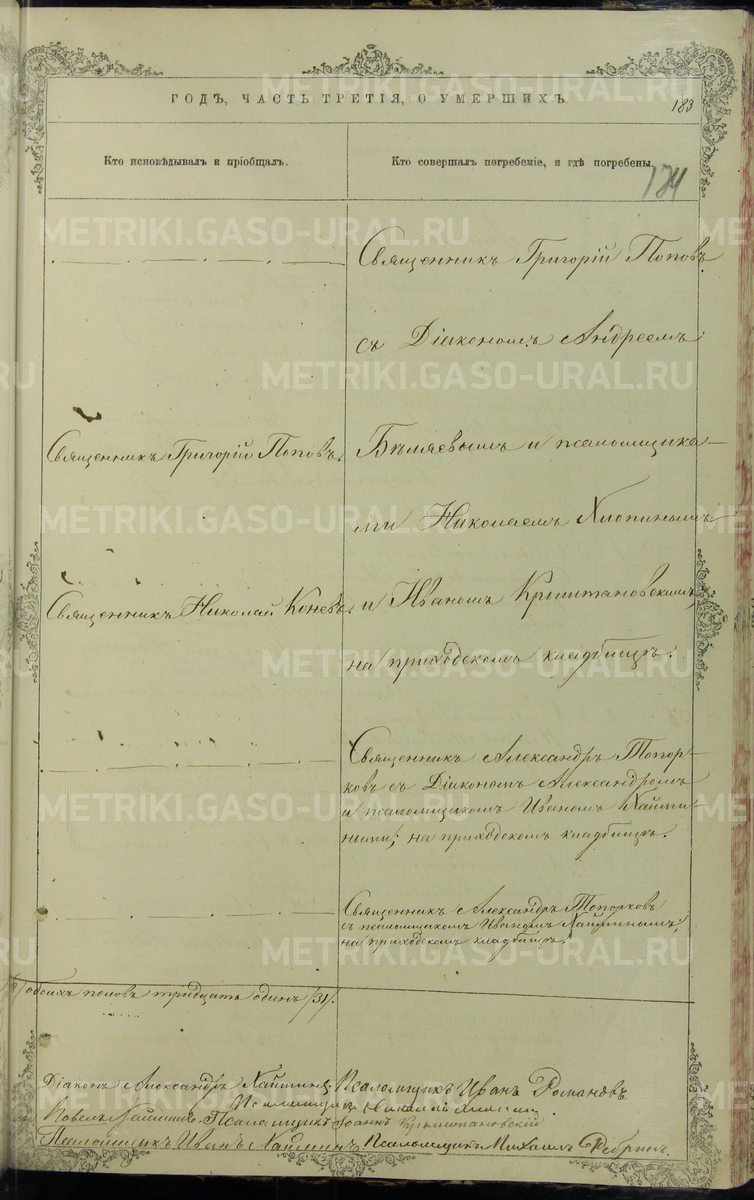 ГОДЪ, ЧАСТЬ ТРЕТІЯ, О УМЕРШИХЪ.
183
Кто исповѣдывалъ и пріобщалъ.
Кто совершалъ погребеніе, и гдѣ погребены.
174
Священникъ Григорій Поповъ
съ Діакономъ Андреемъ
Священникъ Григорій Поповъ.
Бѣляевымъ и псаломщика-
ми Николаемъ Хлопинымъ
Священникъ Николай Коневъ.
и Иваномъ Крыштановскимъ,
на приходскомъ кладбищѣ.
Священникъ Александръ Топор-
ковъ съ Діакономъ Александромъ
и псаломщикомъ Иваномъ Хайми-
ными; на приходскомъ кладбищѣ.
Священникъ Александръ Топорковъ
съ псаломщикомъ Иваномъ Хайминымъ;
на приходскомъ кладбищѣ.
обоихъ половъ тридцать одинъ /31/.
Діаконъ Александръ Хайминъ. Псаломщикъ Иванъ Романовъ.
Псаломщикъ
Павелъ Псаломщикъ Іоаннъ
Псаломщикъ Иванъ Хайминъ Псаломщикъ Михаилъ
METRIKI.GASO-URAL.RU